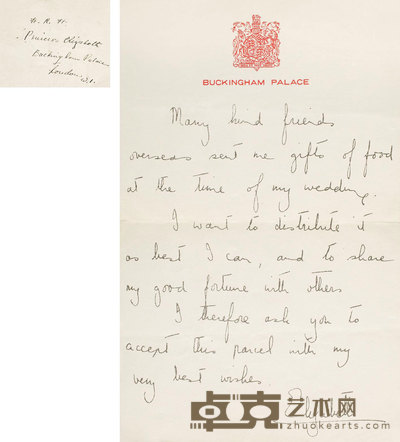 H. R. H.
Princess Elizabeth
Buckingham Palace
London
BUCKINGHAM PALACE
Many kind friends
overseas sent me gifts of food
at the time of my wedding.
I want to distribute it
as best I can, and to share
my good fortune with others
I therefore ask you to
accept this parcel with my
very best wishes.
Elizabeth
卓克艺术网
zhuokearts.com